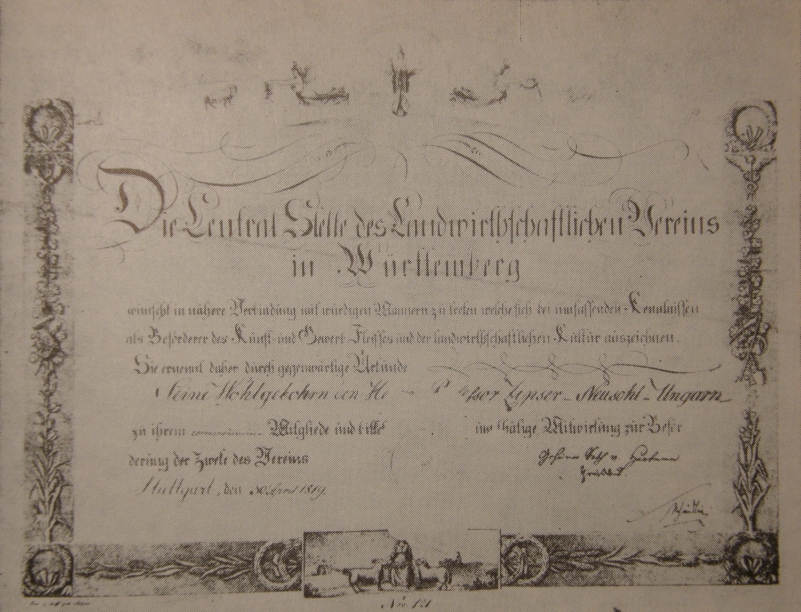 Die Central Stelle des Landwirthschaftlichen Vereins
in Württemberg
wünscht in nähere Verbindung mit würdigen Männern zu treten welche sich bei umfassenden Kenntnissen
als Beförderer des Kunst- und Gewerb-Fleisses und der landwirthschaftlichen Kultur auszeichnen.
Sie ernennt daher durch gegenwärtige Urkunde
Seine Wohlgebohrn den He Zipser - Neusohl - Ungarn
zu ihrem Mitgliede und bittet um thätige Mitwirkung zur Beför
derung der Zweke des Vereins
Stuttgart, den 30 1819
Nro 121